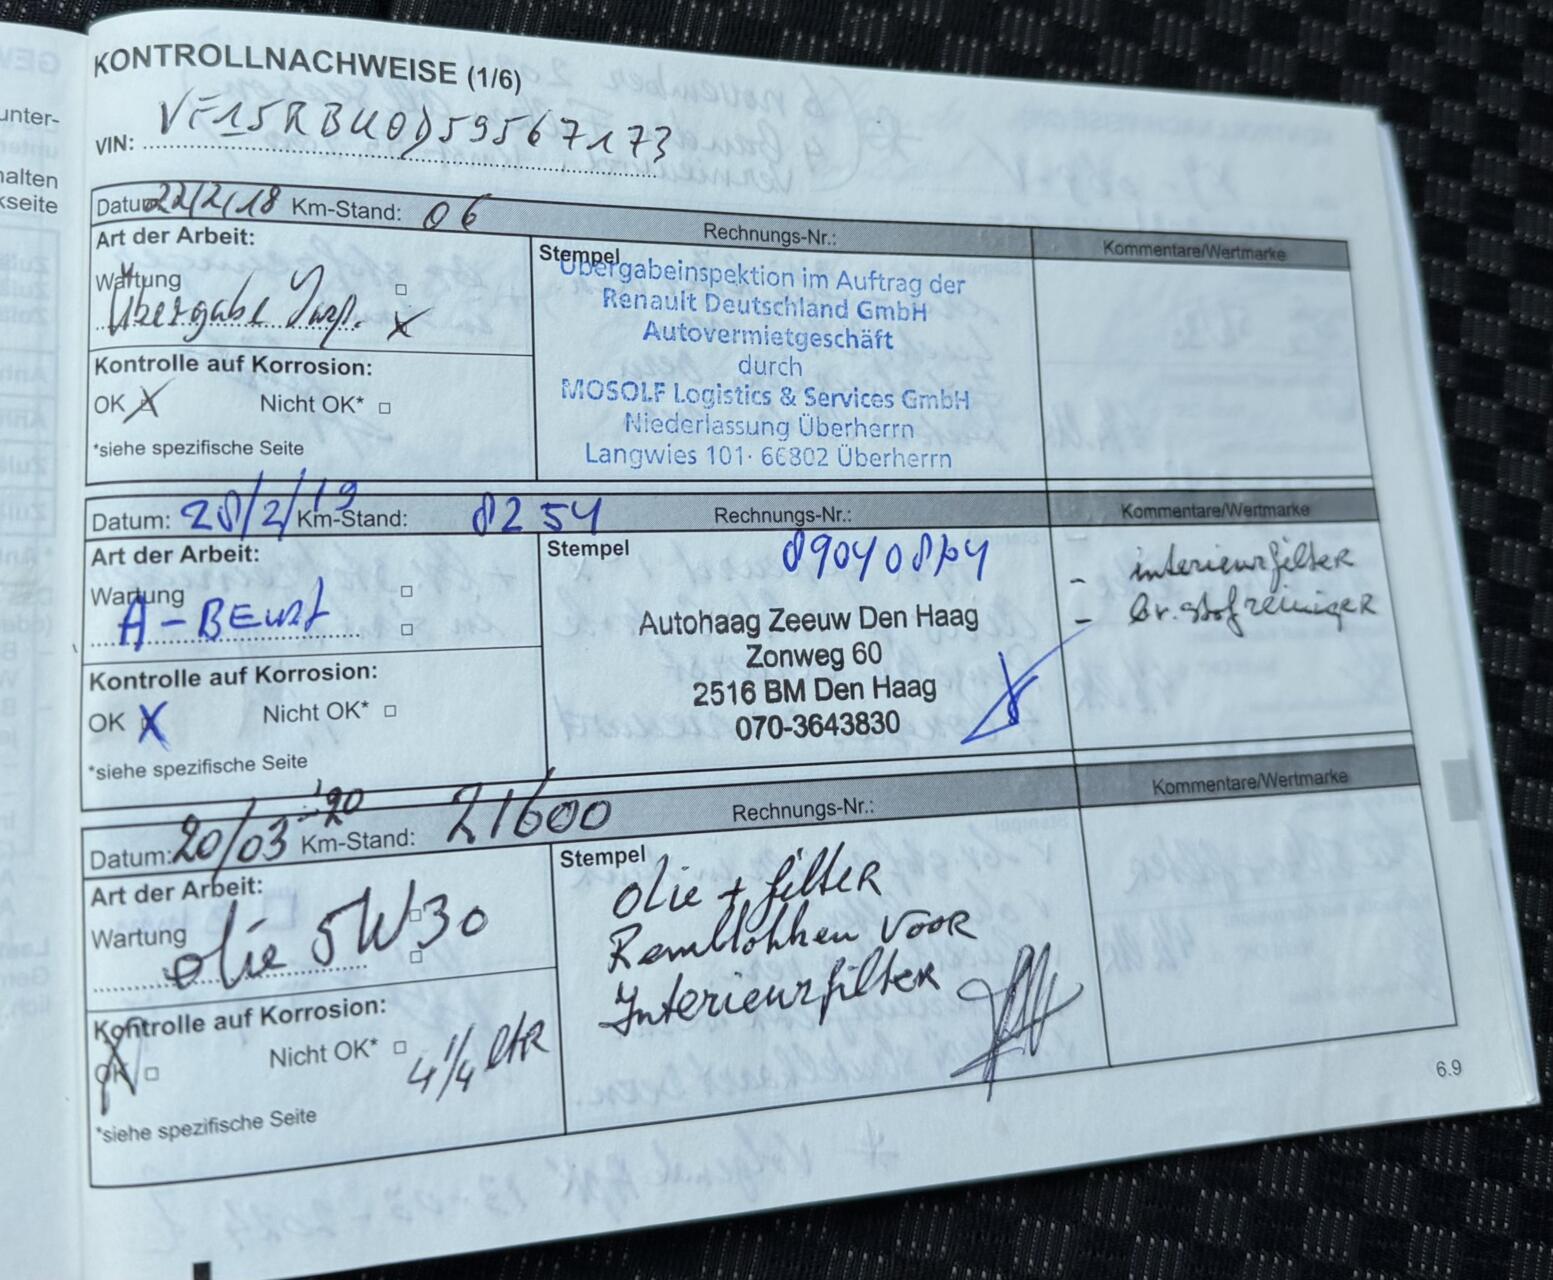 KONTROLLNACHWEISE (1/6)
VIN: VF15RBU0D59567173
Datum: 22/2/18 Km-Stand: 06 Rechnungs-Nr.: Kommentare/Wertmarke
Art der Arbeit:
Wartung
Übergabe Insp. X
Kontrolle auf Korrosion:
OK X Nicht OK*
*siehe spezifische Seite
Stempel
Übergabeinspektion im Auftrag der
Renault Deutschland GmbH
Autovermietgeschäft
durch
MOSOLF Logistics & Services GmbH
Niederlassung Überherrn
Langwies 101· 66802 Überherrn
Datum: 28/2/19 Km-Stand: 8254 Rechnungs-Nr.: Kommentare/Wertmarke
Art der Arbeit:
Wartung
A-BEURT
Kontrolle auf Korrosion:
OK X Nicht OK*
*siehe spezifische Seite
Stempel
Autohaag Zeeuw Den Haag
Zonweg 60
2516 BM Den Haag
070-3643830
- interieurfilter
- br.stofreiniger
Datum: 20/03-'20 Km-Stand: 21600 Rechnungs-Nr.: Kommentare/Wertmarke
Art der Arbeit:
Wartung
olie 5W30
Kontrolle auf Korrosion:
OK Nicht OK*
4 1/4 LTR
*siehe spezifische Seite
Stempel
Olie + filter
Remblokken VOOR
Interieurfilter
6.9
unter-
halten
kseite